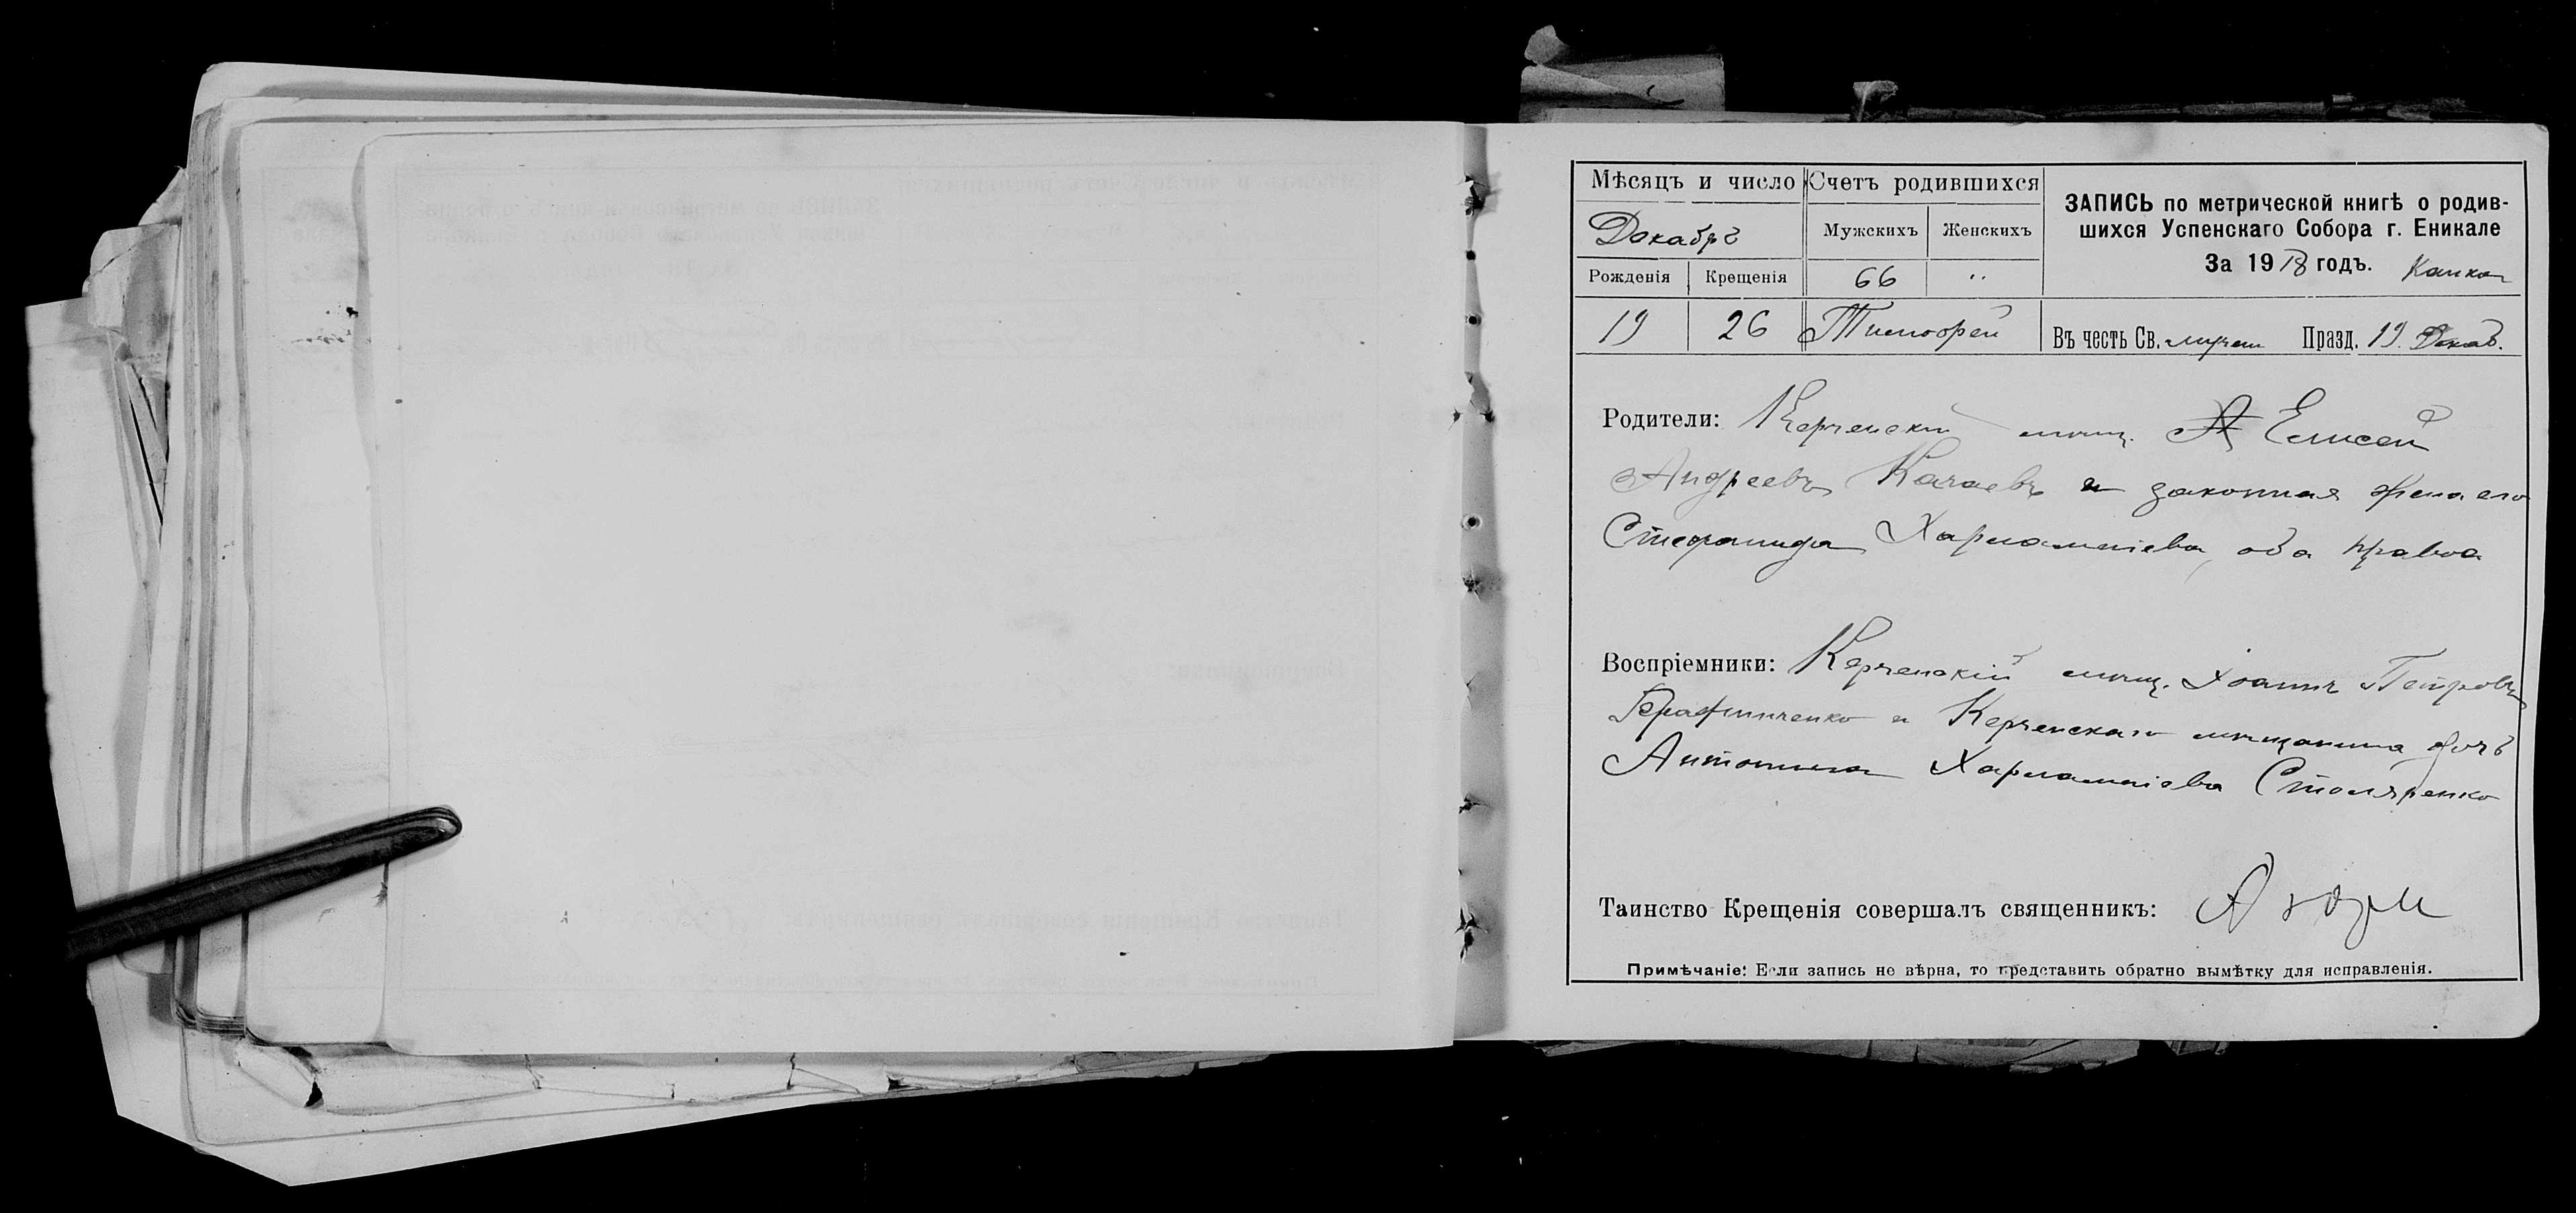 Мѣсяцъ и число
Счетъ родившихся
ЗАПИСЬ по метрической книгѣ о родив-
шихся Успенскаго Собора г. Еникале
За 1918 годъ.
Декабрь
Мужскихъ
Женскихъ
Рожденія
Крещенія
66
"
19
26
Тимофей
Въ честь Св. мучен Празд. 19. Декаб.
Родители: Керченскій мѣщ. Елисей
Андреевъ Качаевъ и законная жена его
Стефанида Харлампіева, оба правос
Воспріемники: Керченскій мѣщ. Іоаннъ Петровъ
и Керченскаго мѣщанина дочь
Антонина Харлампіева Столяренко
Таинство Крещенія совершалъ священникъ:
Примѣчаніе: Если запись не вѣрна, то представить обратно вымѣтку для исправленія.